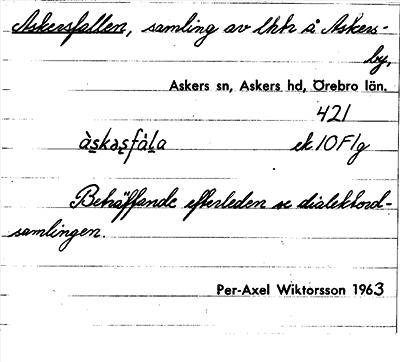 Askersfallen, samling av lhhr å Askers-
by,
Askers sn, Askers hd, Örebro län.
421
às̱kəs̱fàḻa ek 10F1g
Beträffande efterleden se dialektord-
samlingen.
Per-Axel Wiktorsson 1963